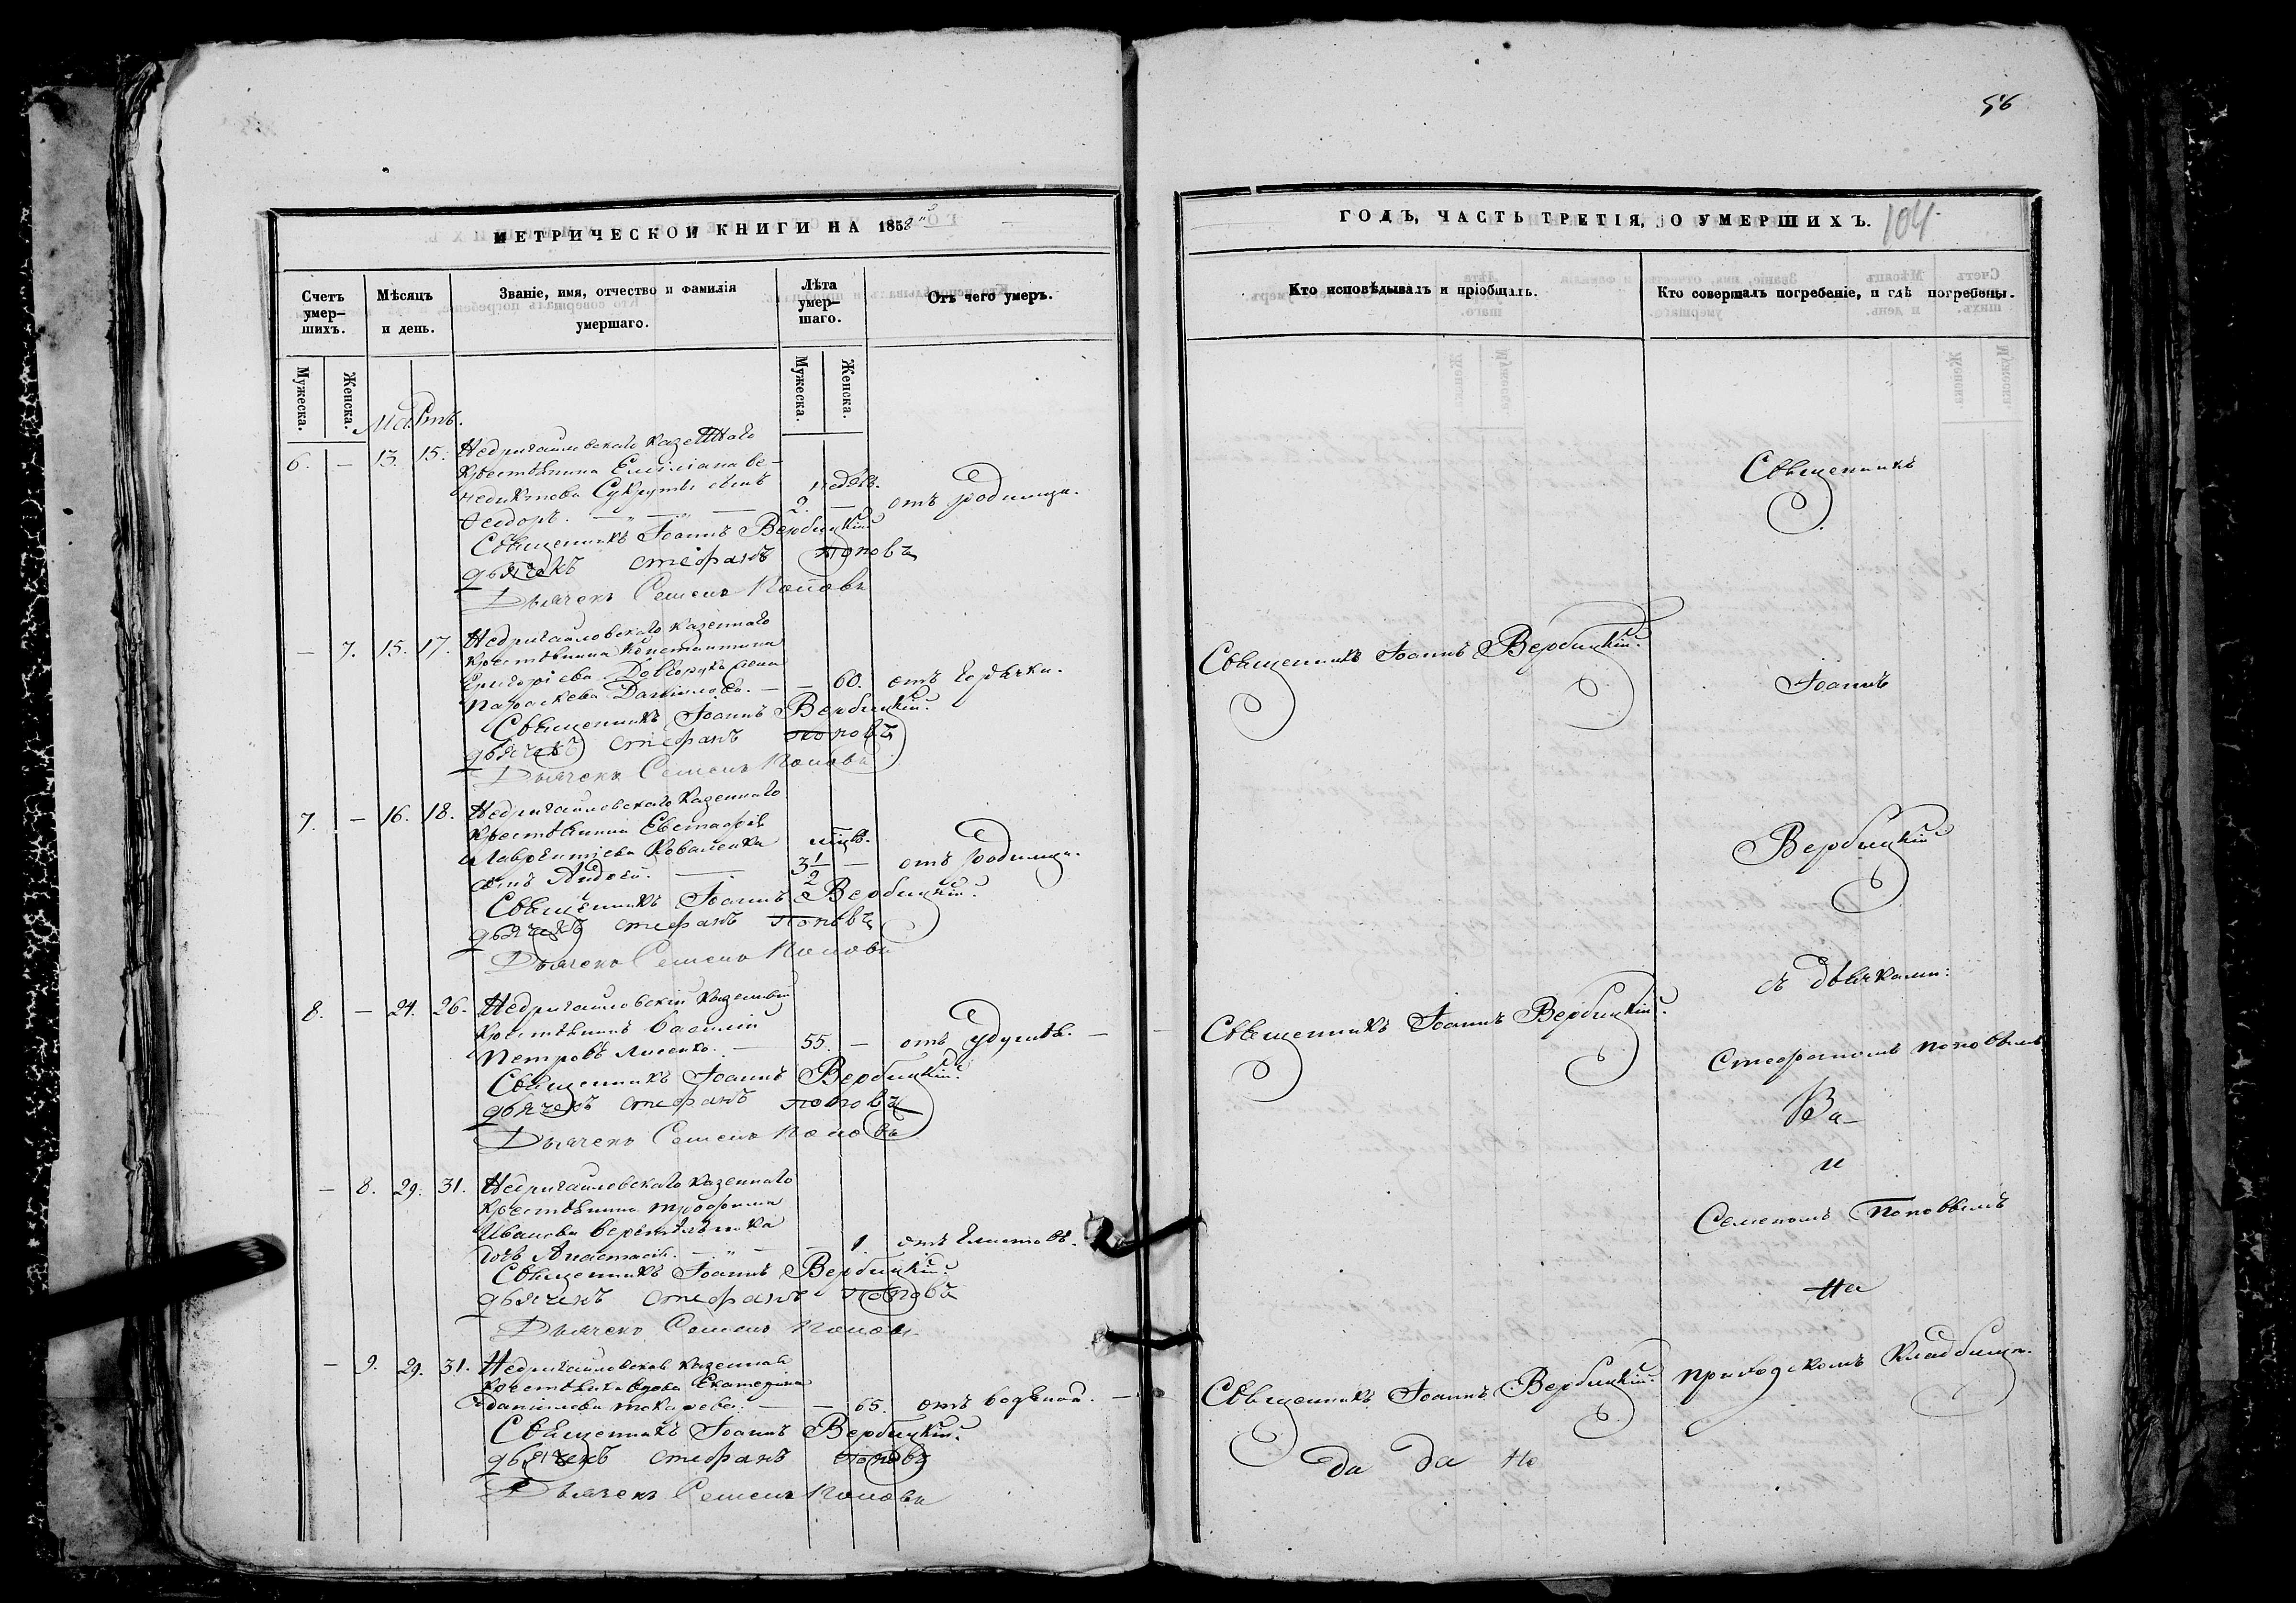 56
МЕТРИЧЕСКОЙ КНИГИ НА 1858
Счетъ умер-шихъ.
Мѣсяцъ и день.
Званіе, имя, отчество и фамилія умершаго.
Лѣта умер-шаго.
Отъ чего умеръ.
Мужеска.
Женска.
Мужеска.
Женска.
Мартъ.
6. — 13. 15. Недригайловскаго казеннаго
крестьянина Емиліана Ве-
недиктова сынъ недѣл.
Ѳеодоръ. — " — " — 2. — отъ родимца.
Священникъ Іоаннъ Вербицкій
дьячекъ стефанъ поповъ
Дьячекъ Семенъ Поповъ
— 7. 15. 17. Недригайловскаго казеннаго
крестьянина Константина
Григоріева жена
Параскева Даніилова. — — 60. отъ горячки.
Священникъ Іоаннъ Вербицкій.
дьячекъ стефанъ поповъ
Дьячекъ Семенъ Поповъ
7. — 16. 18. Недригайловскаго казеннаго
крестьянина Евстафія
Лаврентіева Коваленка мѣцв.
сынъ Андрей. — 3 1/2 — отъ родимца.
Священникъ Іоаннъ Вербицкій.
дьячекъ стефанъ поповъ
Дьячекъ Семенъ Поповъ
8. — 24. 26. Недригайловскій казенный
крестьянинъ Василій
Петровъ Лисенко. — 55. — отъ удушья. —
Священникъ Іоаннъ Вербицкій.
дьячекъ стефанъ поповъ
Дьячекъ Семенъ Поповъ
— 8. 29. 31. Недригайловскаго казеннаго
крестьянина Трофима
Иванова Веретельника
дочь Анастасія. — " — — 1. отъ глистовъ.
Священникъ Іоаннъ Вербицкій.
дьячекъ стефанъ поповъ
Дьячекъ Семенъ Поповъ
— 9. 29. 31. Недригайловская казенная
крестьянка вдова Екатерина
Данилова — — 65. отъ водяной. —
Священникъ Іоаннъ Вербицкій.
дьячекъ стефанъ поповъ
Дьячекъ Семенъ Поповъ
ГОДЪ, ЧАСТЬ ТРЕТІЯ, О УМЕРШИХЪ. 104.
Кто исповѣдывалъ и пріобщалъ.
Кто совершалъ погребеніе, и гдѣ погребены.
Священникъ
Священникъ Іоаннъ Вербицкій.
Іоаннъ
Вербицкій
съ дьячками:
Священникъ Іоаннъ Вербицкій.
Стефаномъ Поповымъ
Ва-
и
Семеномъ Поповымъ
на
Священникъ Іоаннъ Вербицкій.
приходскомъ кладбищѣ.
да да Не